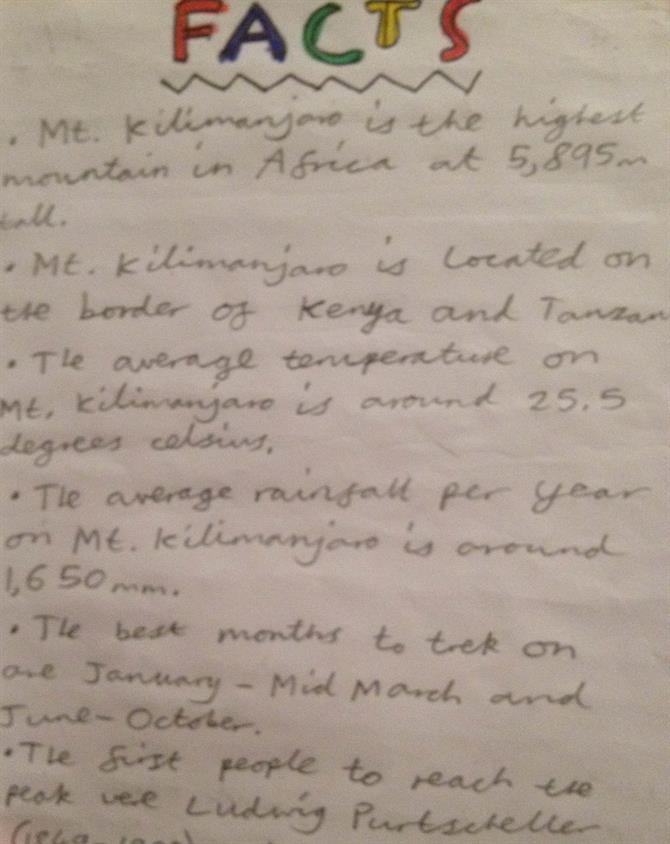 FACTS
• Mt. Kilimanjaro is the highest
mountain in Africa at 5,895m
tall.
• Mt. Kilimanjaro is located on
the border of Kenya and Tanzan
• The average temperature on
Mt. Kilimanjaro is around 25.5
degrees celsius.
• The average rainfall per year
on Mt. Kilimanjaro is around
1,650mm.
• The best months to trek on
are January - Mid March and
June - October.
• The first people to reach the
peak were Ludwig Purtscheller